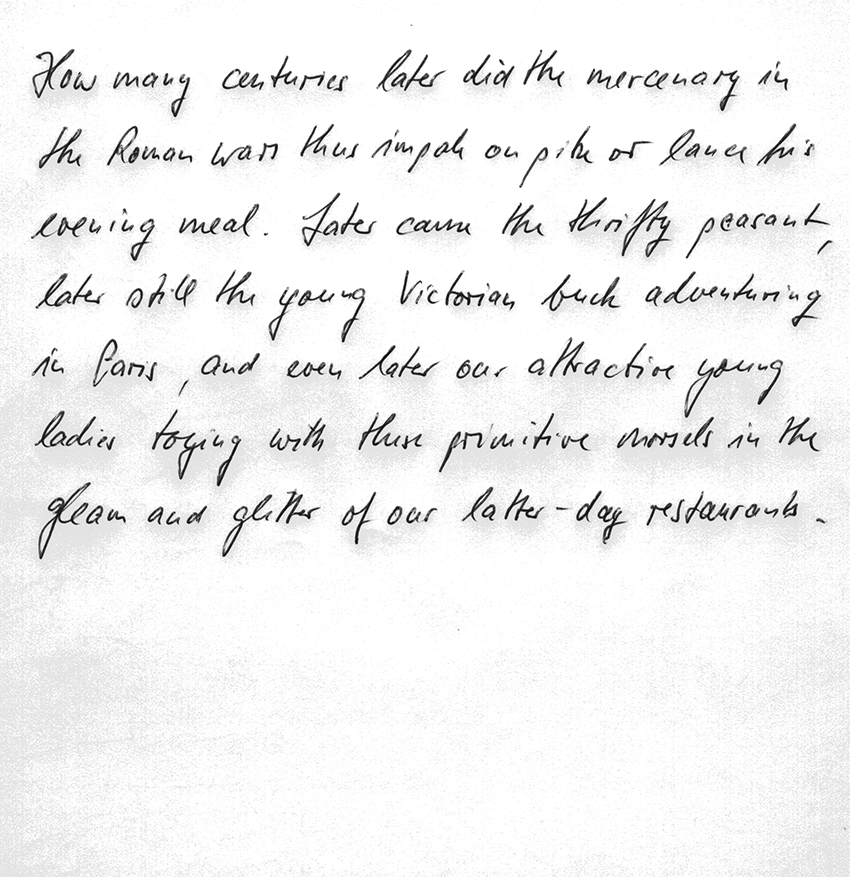 How many centuries later did the mercenary in
the Roman wars thus impale on pike or lance his
evening meal. Later came the thrifty peasant,
later still the young Victorian buck adventuring
in Paris, and even later our attractive young
ladies toying with these primitive morsels in the
gleam and glitter of our latter-day restaurants.